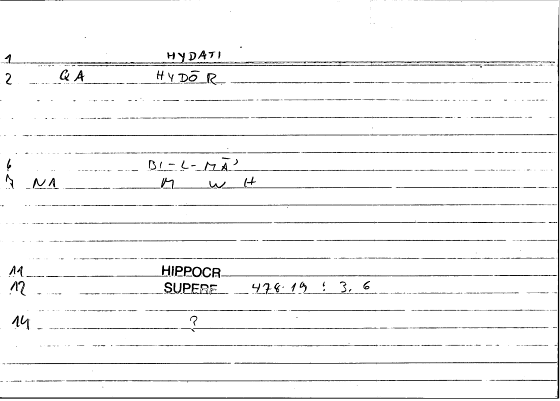 1 HYDATI
2 GA HYDŌR
6 BI-L-MĀ'
7 NA M W H
11 HIPPOCR
12 SUPERF 478.19 : 3, 6
14 ?